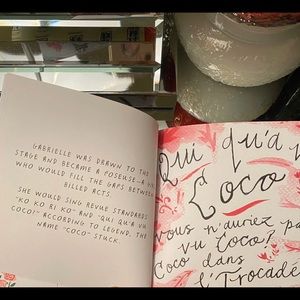 GABRIELLE WAS DRAWN TO THE
STAGE AND BECAME A POSEUSE–A
WHO WOULD FILL THE GAPS BETWEEN
BILLED ACTS.
SHE WOULD SING REVUE STANDARDS
"KO KO RI KO" AND "QUI QU'A VU
COCO?" ACCORDING TO LEGEND, THE
NAME "COCO" STUCK.
Qui qu'a
Coco
vous n'auriez pa
vu Coco?
Coco dans
l'Trocadé